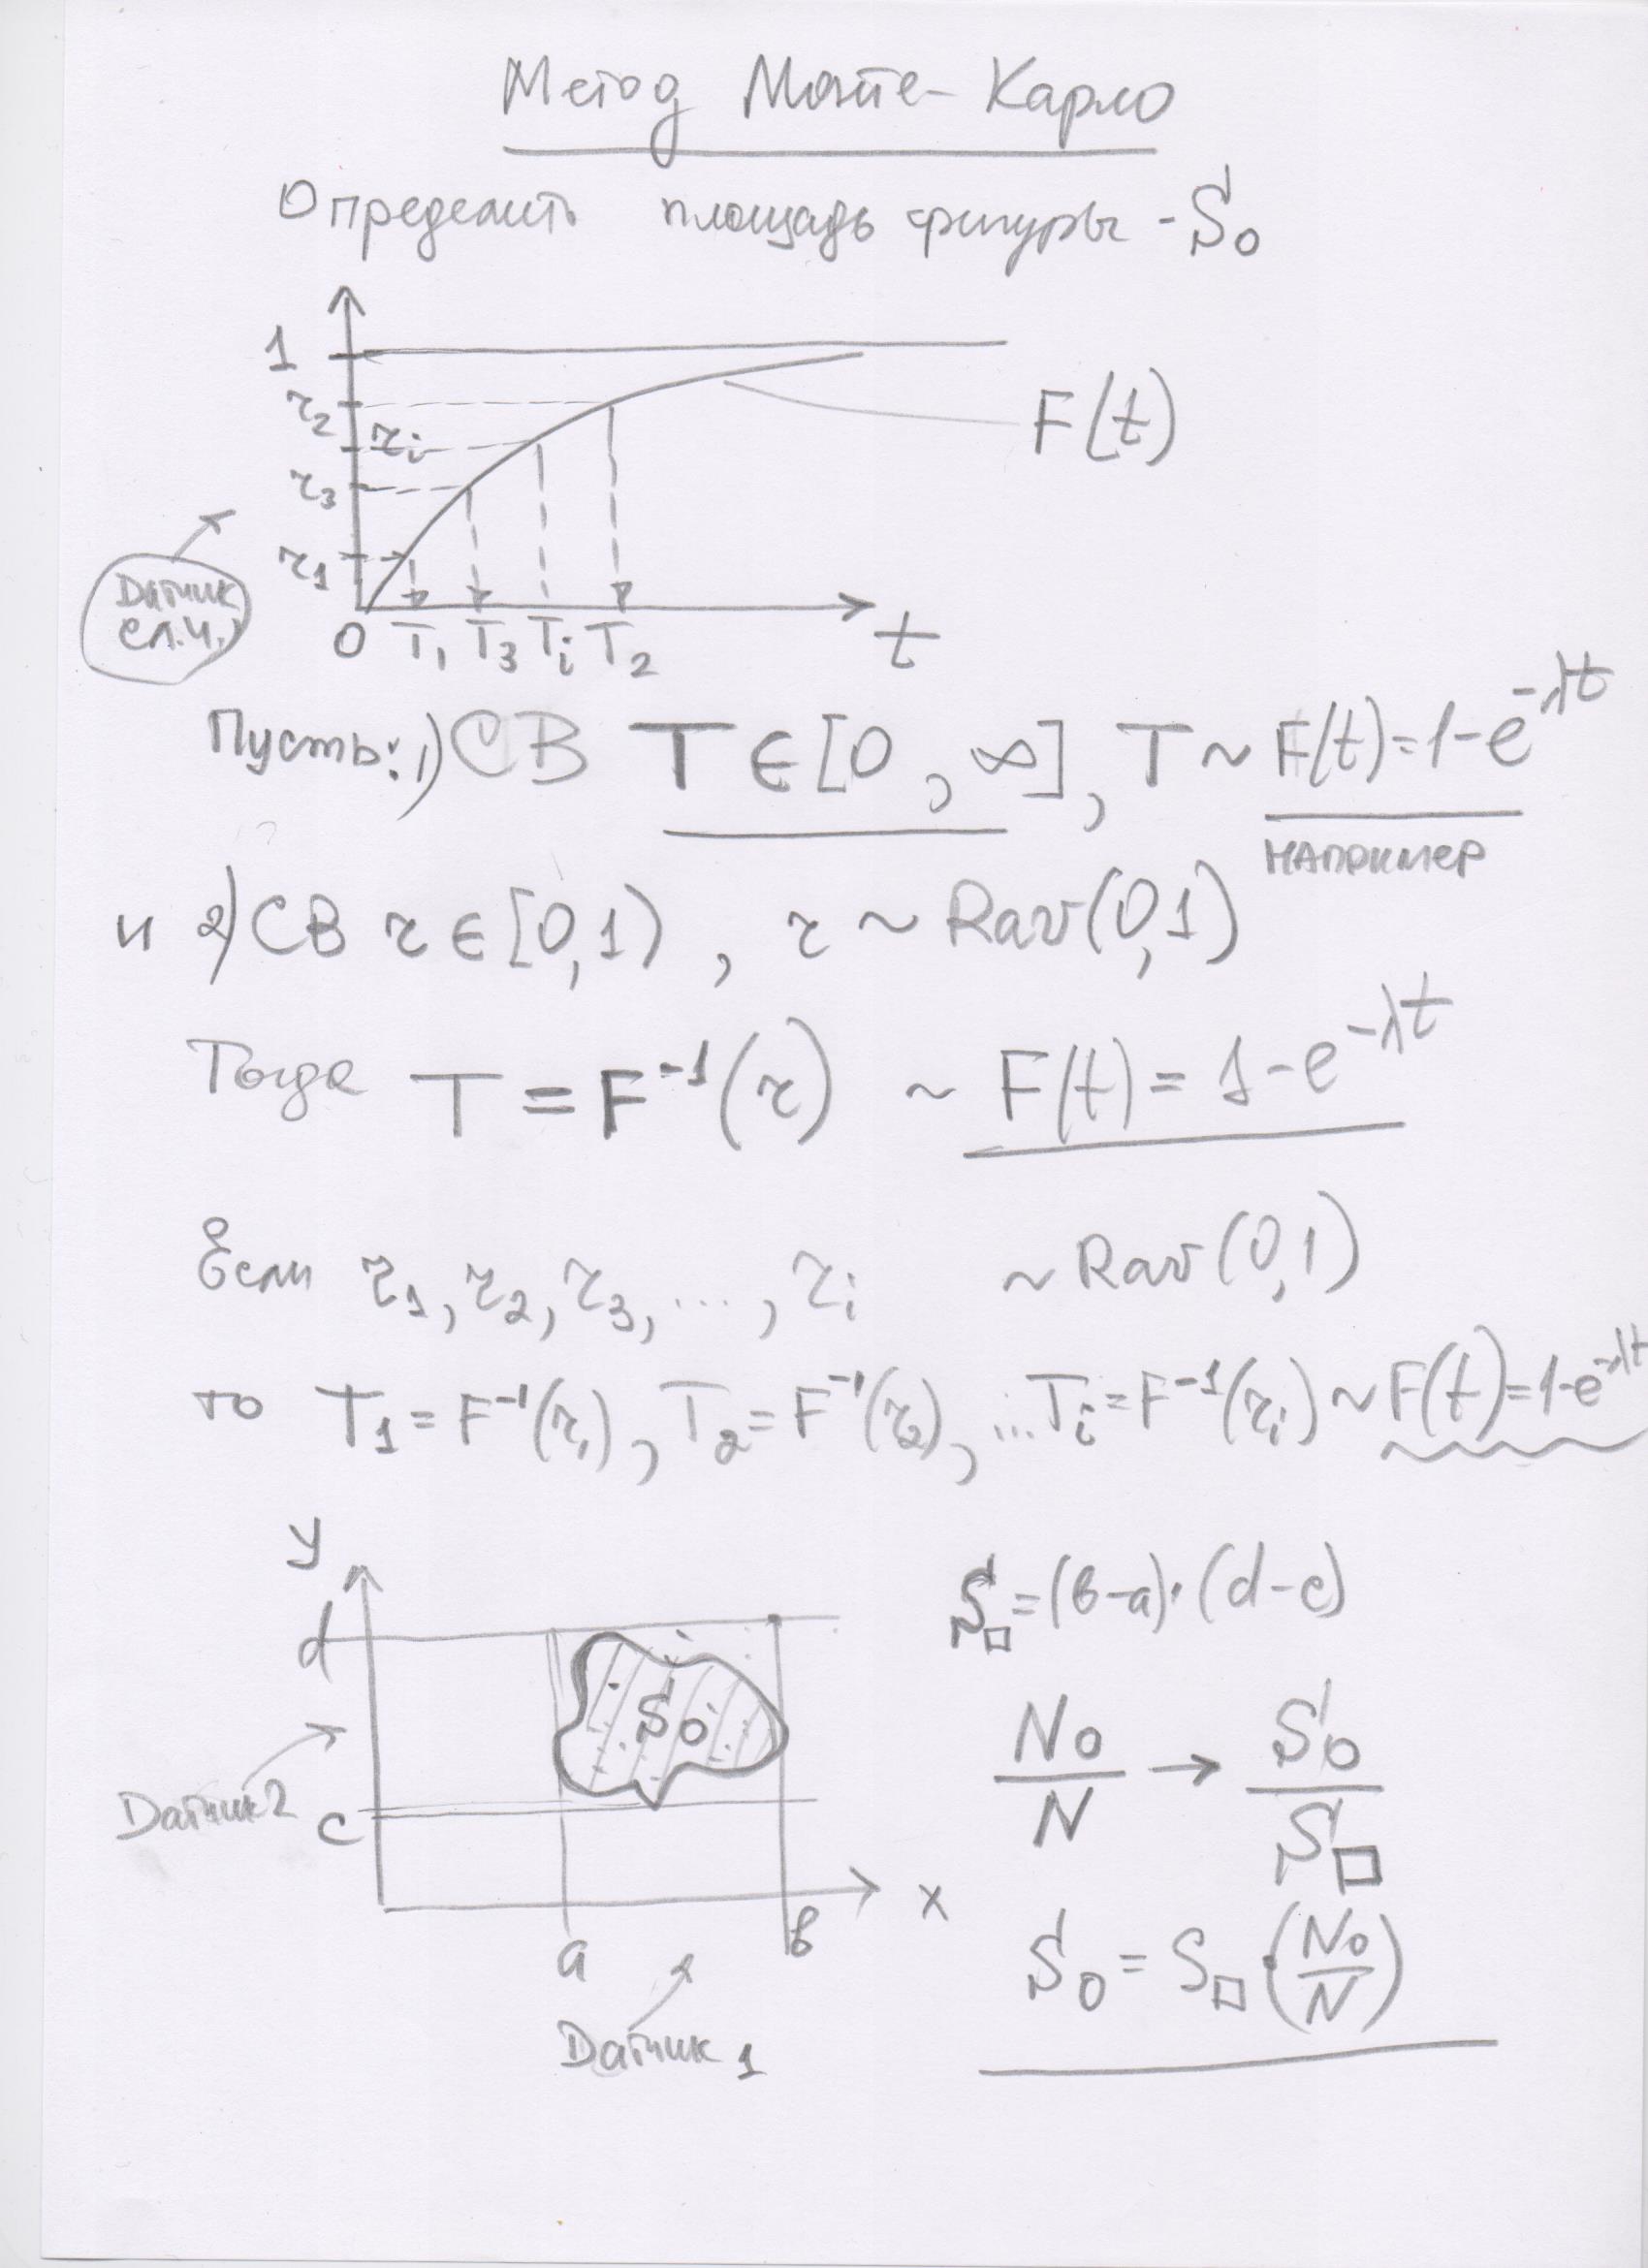 Метод Монте-Карло
Определить площадь фигуры - S₀
1
r₂
rᵢ
F(t)
r₃
r₁
Датчик
сл.ч.
0 T₁ T₃ Tᵢ T₂ t
Пусть: 1) СВ T ∈ [0, ∞], T ~ F(t) = 1 - e^(-λt)
НАПРИМЕР
и 2) СВ r ∈ [0,1), r ~ Rav(0,1)
Тогда T = F⁻¹(r) ~ F(t) = 1 - e^(-λt)
Если r₁, r₂, r₃, ..., rᵢ ~ Rav(0,1)
то T₁ = F⁻¹(r₁), T₂ = F⁻¹(r₂), ... Tᵢ = F⁻¹(rᵢ) ~ F(t) = 1-e^(-λt)
y
d
S₀
Датчик 2
c
a
в
x
Датчик 1
S□ = (в-a)·(d-c)
N₀/N → S₀/S□
S₀ = S□·(N₀/N)